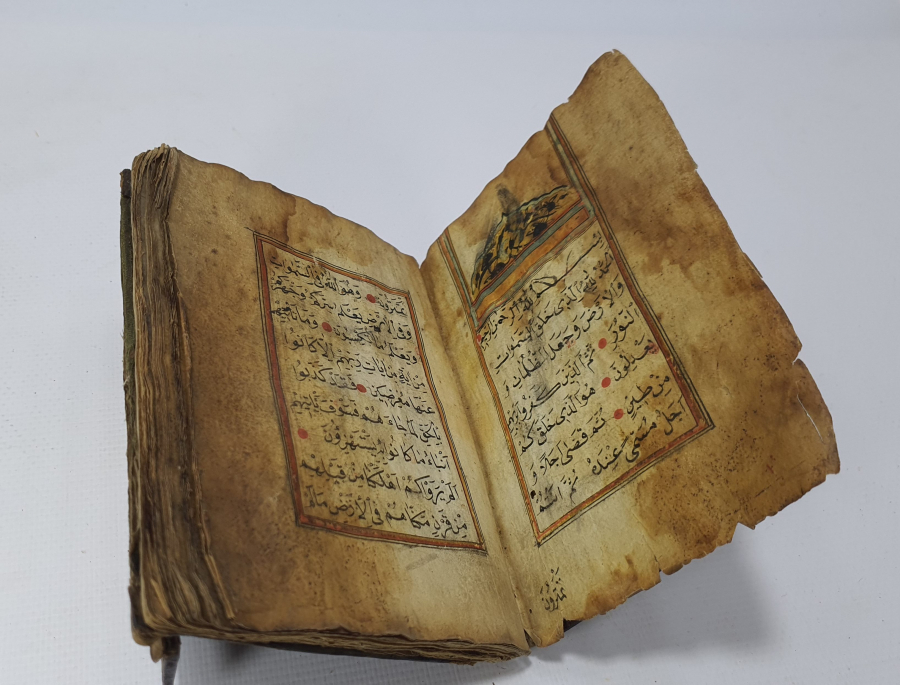 بسم الله الرحمن الرحيم
الحمد لله الذى خلق السموات
والارض وجعل الظلمات و
النور ثم الذين كفروا بربهم
يعدلون هو الذى خلقكم
من طين ثم قضى اجلا و
اجل مسمى عنده ثم انتم
تمترون
تمترون وهو الله فى السموات
وفى الارض يعلم سركم وجهركم
ويعلم ما تكسبون وما تاتيهم
من اية من ايات ربهم الا كانوا
عنها معرضين فقد كذبوا
بالحق لما جاءهم فسوف ياتيهم
انباء ما كانوا به يستهزؤن
الم يروا كم اهلكنا من قبلهم
من قرن مكناهم فى الارض مالم